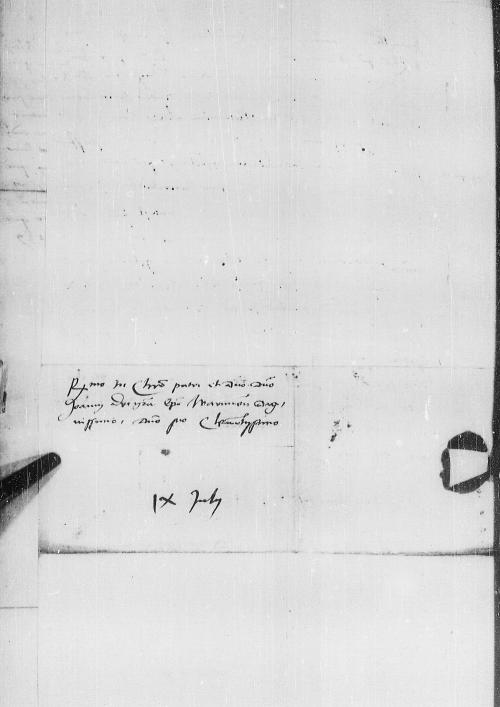 R͞mo in Chro patri et dno dno
Joanni dei gra Epo Warmien dig,
nissimo, dno suo Clementissimo
IX July